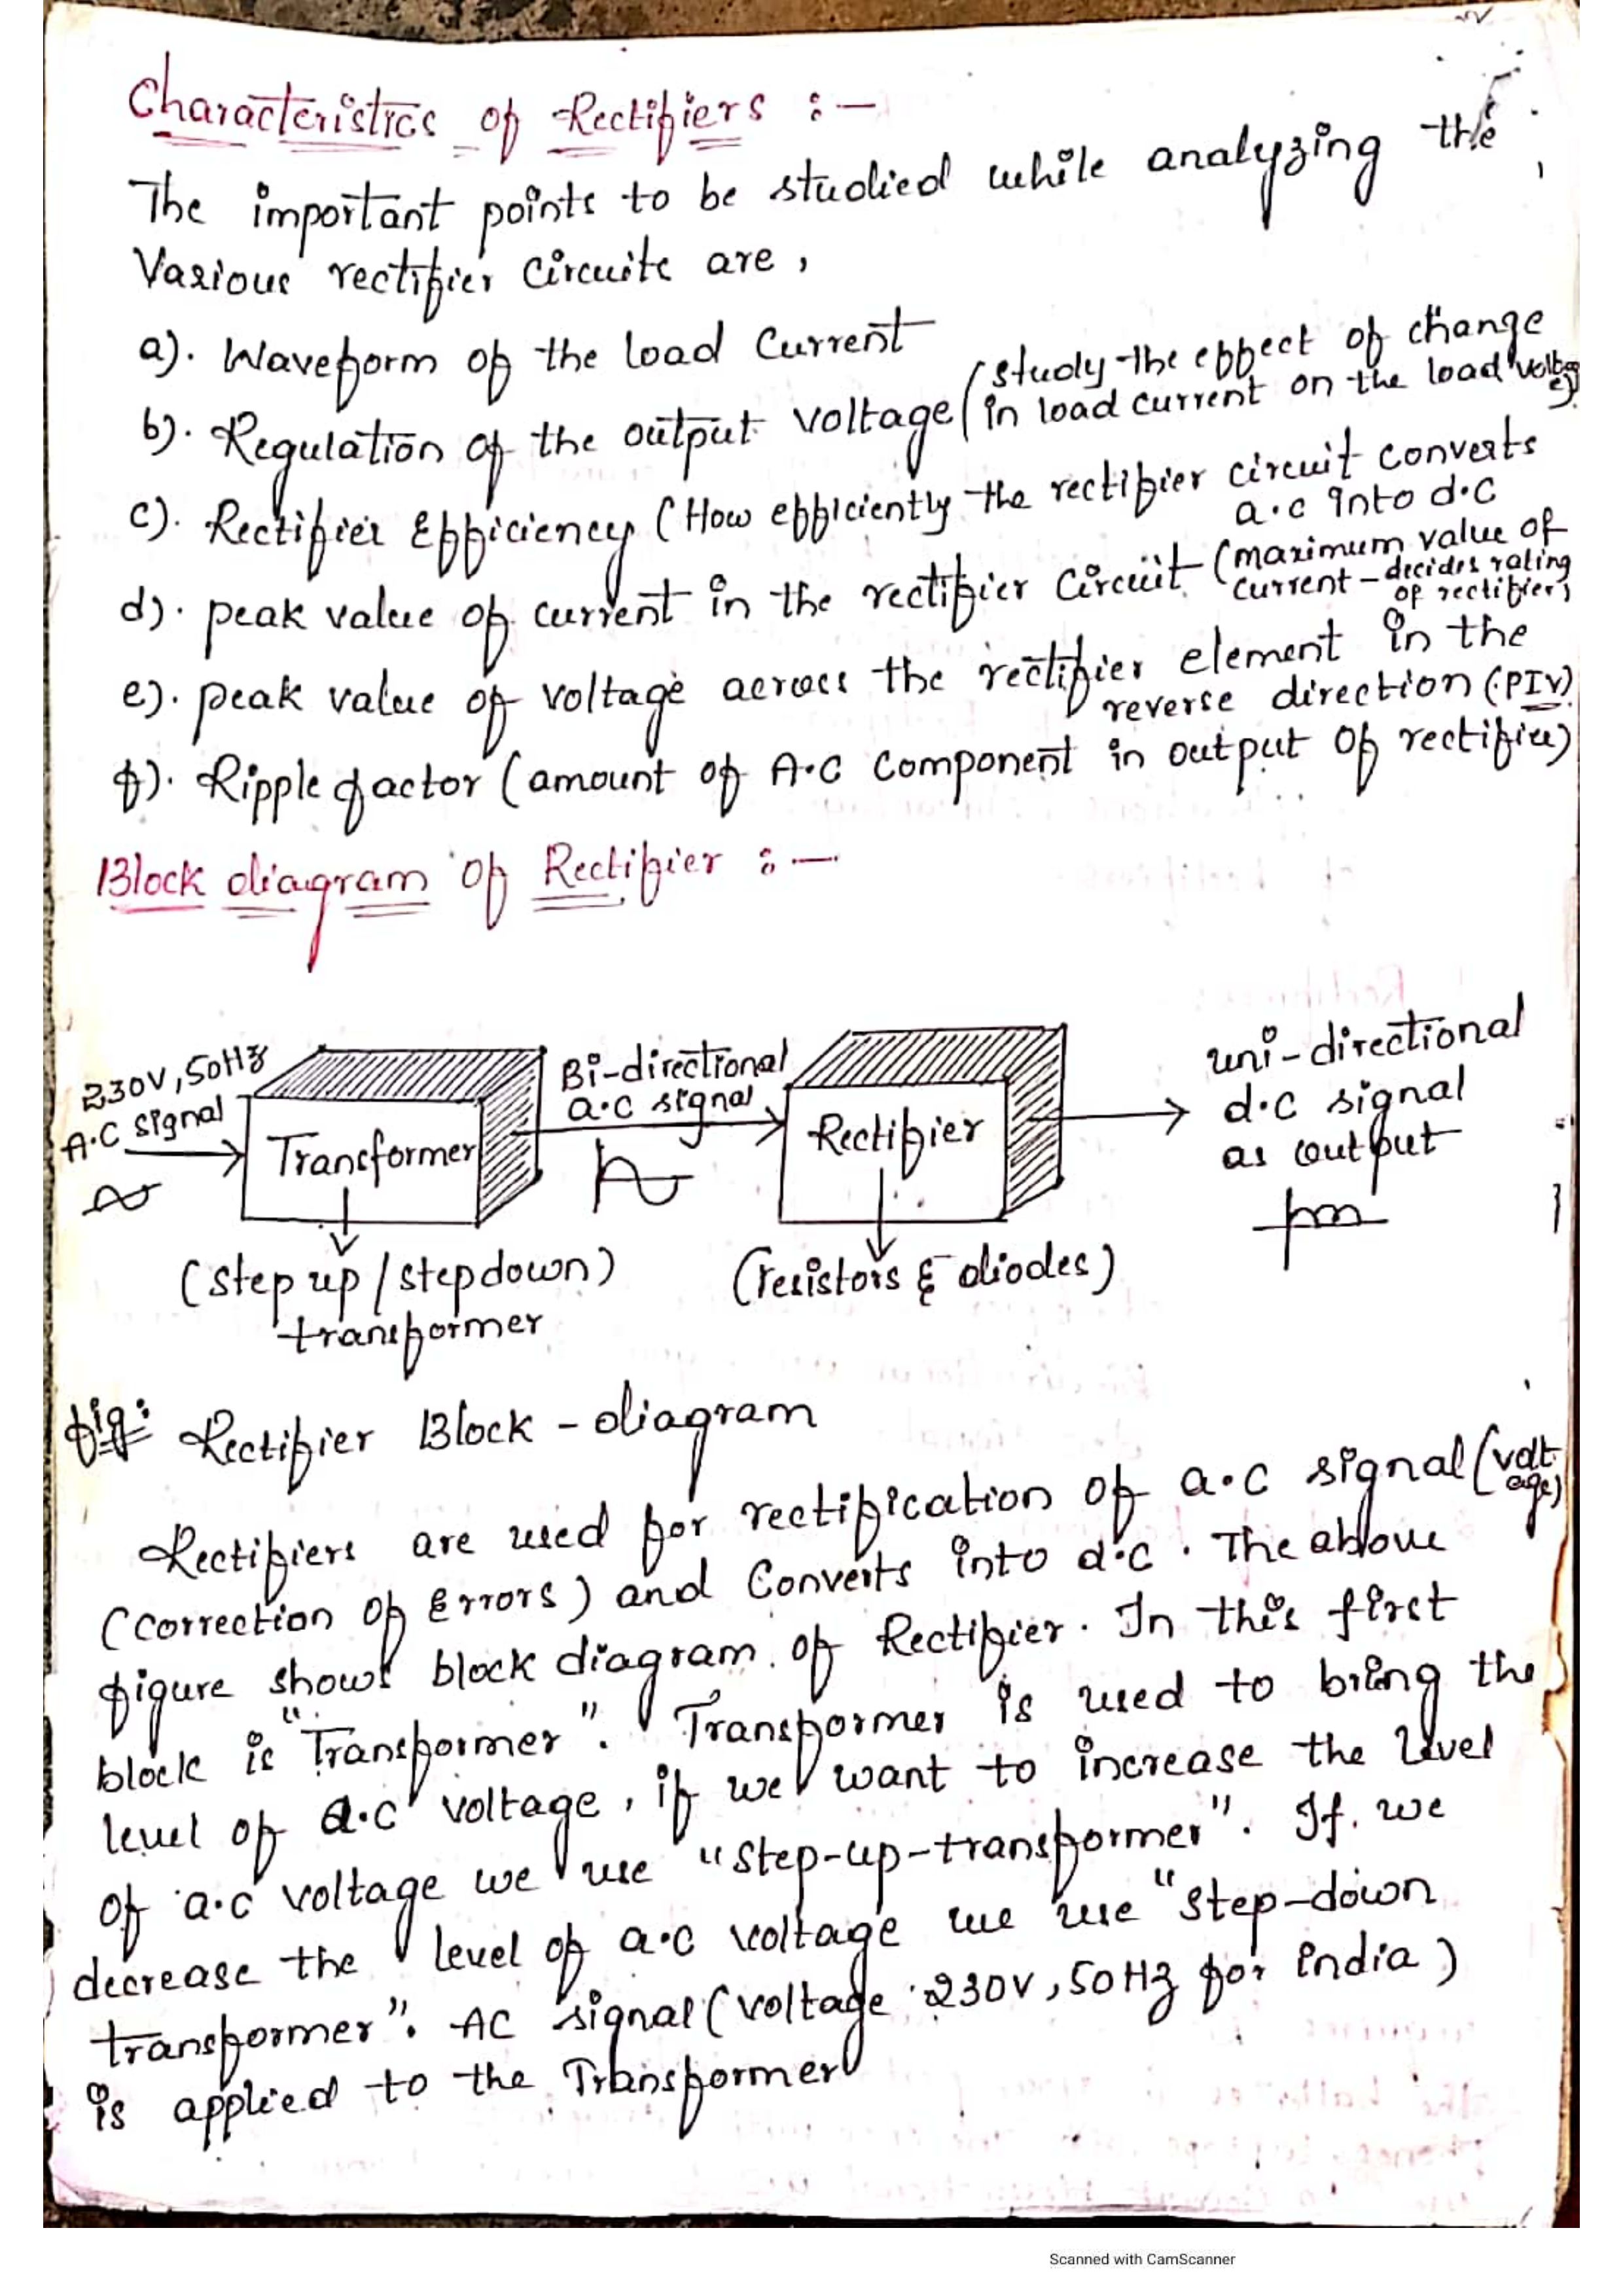 Characteristics of Rectifiers :-
The important points to be studied while analyzing the
Various rectifier circuits are,
a). Waveform of the load Current
b). Regulation of the output voltage (study the effect of change
in load current on the load voltage).
c). Rectifier Efficiency (How efficiently the rectifier circuit converts
a.c into d.c
d). peak value of current in the rectifier circuit (maximum value of
current - decides rating
of rectifier)
e). peak value of voltage across the rectifier element in the
reverse direction (PIV)
f). Ripple factor (amount of A.C Component in output of rectifier)
Block diagram of Rectifier :-
230V, 50Hz
A.C signal
Transformer
(step up / stepdown)
transformer
Bi-directional
a.c signal
Rectifier
(resistors & diodes)
uni-directional
d.c signal
as output
fig: Rectifier Block-diagram
Rectifiers are used for rectification of a.c signal (voltage)
(correction of Errors) and Converts into d.c. The above
figure shows block diagram of Rectifier. In this first
block is "Transformer". Transformer is used to bring the
level of a.c voltage, if we want to increase the level
of a.c voltage we use "step-up-transformer". If we
decrease the level of a.c voltage we use "step-down
transformer". AC signal (voltage 230V, 50Hz for india)
is applied to the Transformer
Scanned with CamScanner